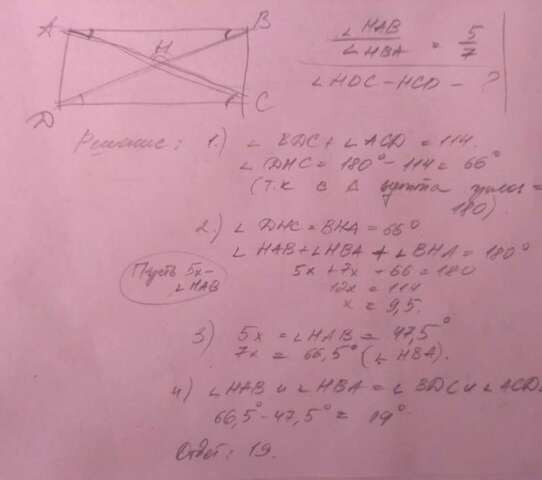 A B
H
D C
∠HAB / ∠HBA = 5/7
∠HDC - HCD - ?
Решение: 1.) ∠ BDC + ∠ ACD = 114.
∠ DHC = 180° - 114 = 66°
(т.к в Δ сумма углов =
180)
2.) ∠ DHC = BHA = 66°
∠ HAB + ∠HBA + ∠ BHA = 180°
Пусть 5x -
∠ HAB
5x + 7x + 66 = 180
12x = 114
x = 9,5.
3) 5x = ∠HAB = 47,5°
7x = 66,5° (∠ HBA).
4) ∠HAB и ∠ HBA = ∠ BDC и ∠ ACD.
66,5° - 47,5° = 19°.
Ответ: 19.